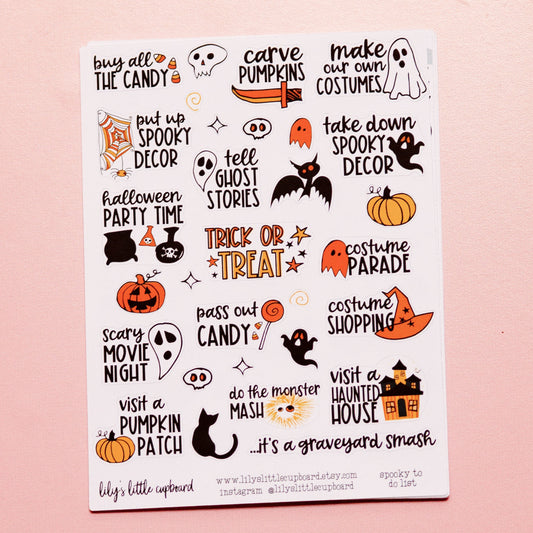 buy all
THE CANDY
carve
PUMPKINS
make
our own
COSTUMES
put up
SPOOKY
DECOR
tell
GHOST
STORIES
take down
SPOOKY
DECOR
halloween
PARTY TIME
TRICK OR
TREAT
costume
PARADE
pass out
CANDY
costume
SHOPPING
scary
MOVIE
NIGHT
do the monster
MASH
visit a
HAUNTED
HOUSE
visit a
PUMPKIN
PATCH
...it's a graveyard smash
lily's little cupboard
www.lilyslittlecupboard.etsy.com
instagram @lilyslittlecupboard
spooky to
do list